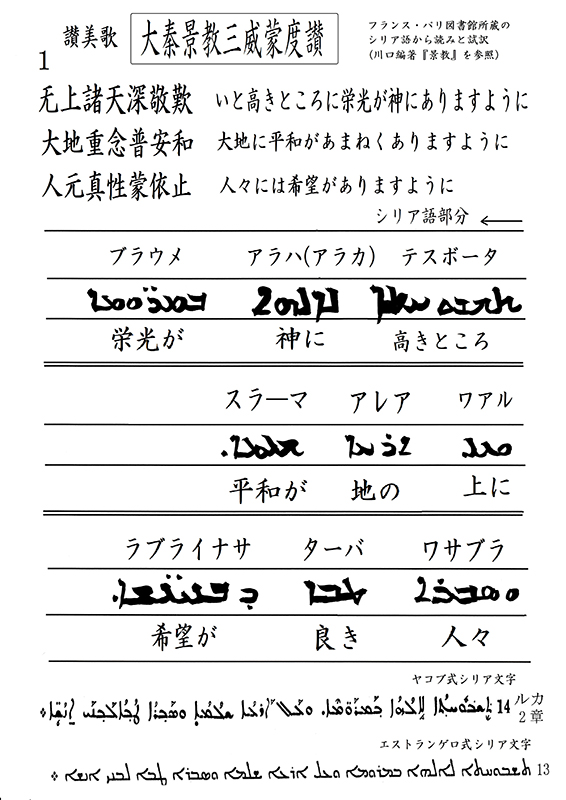 1
讃美歌
大秦景教三威蒙度讃
フランス・パリ図書館所蔵の
シリア語から読みと試訳
(川口編著『景教』を参照)
无上諸天深敬歎 いと高きところに栄光が神にありますように
大地重念普安和 大地に平和があまねくありますように
人元真性蒙依止 人々には希望がありますように
シリア語部分 ←
ブラウメ アラハ(アラカ) テスボータ
栄光が 神に 高きところ
スラーマ アレア ワアル
平和が 地の 上に
ラブライナサ ターバ ワサブラ
希望が 良き 人々
ヤコブ式シリア文字
ルカ2章
14 ܬܫܒܘܚܬܐ ܠܐܠܗܐ ܒܡܪܘܡܐ. ܘܥܠ ܐܪܥܐ ܫܠܡܐ ܘܣܒܪܐ ܛܒܐ ܠܒܢܝ ܐܢܫܐ܀
エストランゲロ式シリア文字
ܬܫܒܘܚܬܐ ܠܐܠܗܐ ܒܡܪܘܡܐ ܘܥܠ ܐܪܥܐ ܫܠܡܐ ܘܣܒܪܐ ܛܒܐ ܠܒܢܝ ܐܢܫܐ܀
13